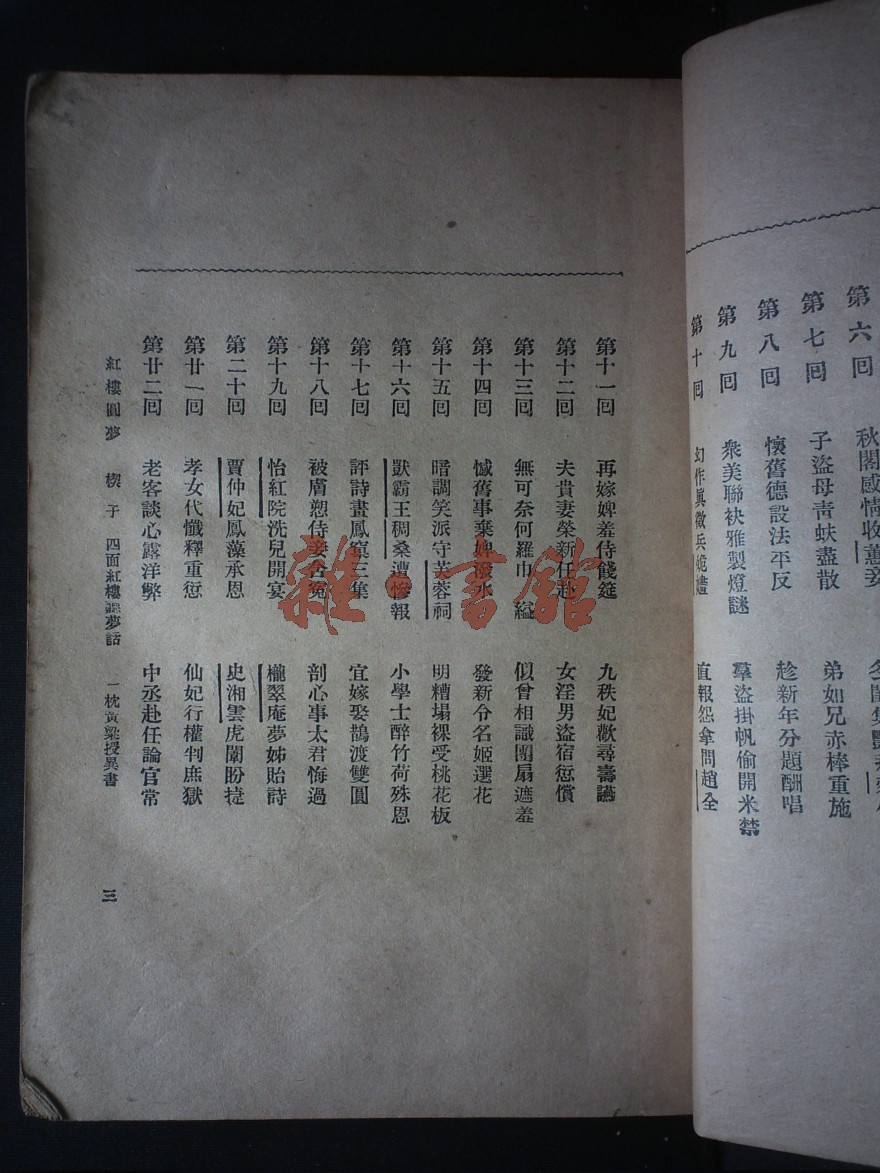 第六回　秋閣感情收蕙妾
第七回　子盜母靑蚨盡散　弟如兄赤棒重施
第八回　懷舊德設法平反　趁新年分題酬唱
第九回　衆美聯袂雅製燈謎　羣盜掛帆偷開米禁
第十回　幻作眞徵兵姽嫿　直報怨拿問趙全
第十一回　再嫁婢羞侍餞筵　九秩妃歡尋壽讌
第十二回　夫貴妻榮新任赴　女淫男盜宿愆償
第十三回　無可奈何羅巾縊　似曾相識團扇遮羞
第十四回　憾舊事棄婢潑水　發新令名姬選花
第十五回　暗調笑派守芙蓉祠　明糟塌裸受桃花板
第十六回　獃霸王稠桑遭慘報　小學士醉竹荷殊恩
第十七回　評詩畫鳳窠三集　宜嫁娶鵲渡雙圓
第十八回　被膚愬侍妾含冤　剖心事太君悔過
第十九回　怡紅院洗兒開宴　櫳翠庵夢姊貽詩
第二十回　賈仲妃鳳藻承恩　史湘雲虎闈盼捷
第廿一回　孝女代懺釋重愆　仙妃行權判庶獄
第廿二回　老客談心露洋弊　中丞赴任論官常
紅樓圓夢　楔子　四面紅樓羣夢話　一枕黃粱授異書
三
雜·書館